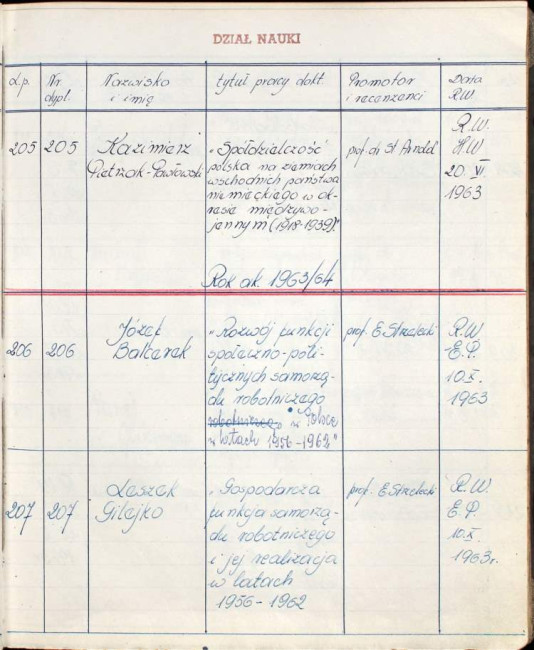 DZIAŁ NAUKI
L.p. Nr. dypl. Nazwisko i imię tytuł pracy dokt. Promotor i recenzenci Data R.W.
205 205 Kazimierz Pietrzak-Pawłowski
„Spółdzielczość
polska na ziemiach
wschodnich państwa
niemieckiego w ok-
resie międzywo-
jennym (1918-1939)."
prof. dr St. Arndel
R.W.
H.W
20. VI.
1963
Rok ak. 1963/64
206 206 Józef Balcerek
„Rozwój funkcji
społeczno-poli-
tycznych samorzą-
du robotniczego
robotniczego w Polsce
w latach 1956-1962"
prof. E. Strzelecki
R.W
E.P.
10.X.
1963
207 207 Leszek Gilejko
„Gospodarcza
funkcja samorzą-
du robotniczego
i jej realizacja
w latach
1956-1962
prof. E. Strzelecki
R.W.
E.P.
10.X.
1963r.